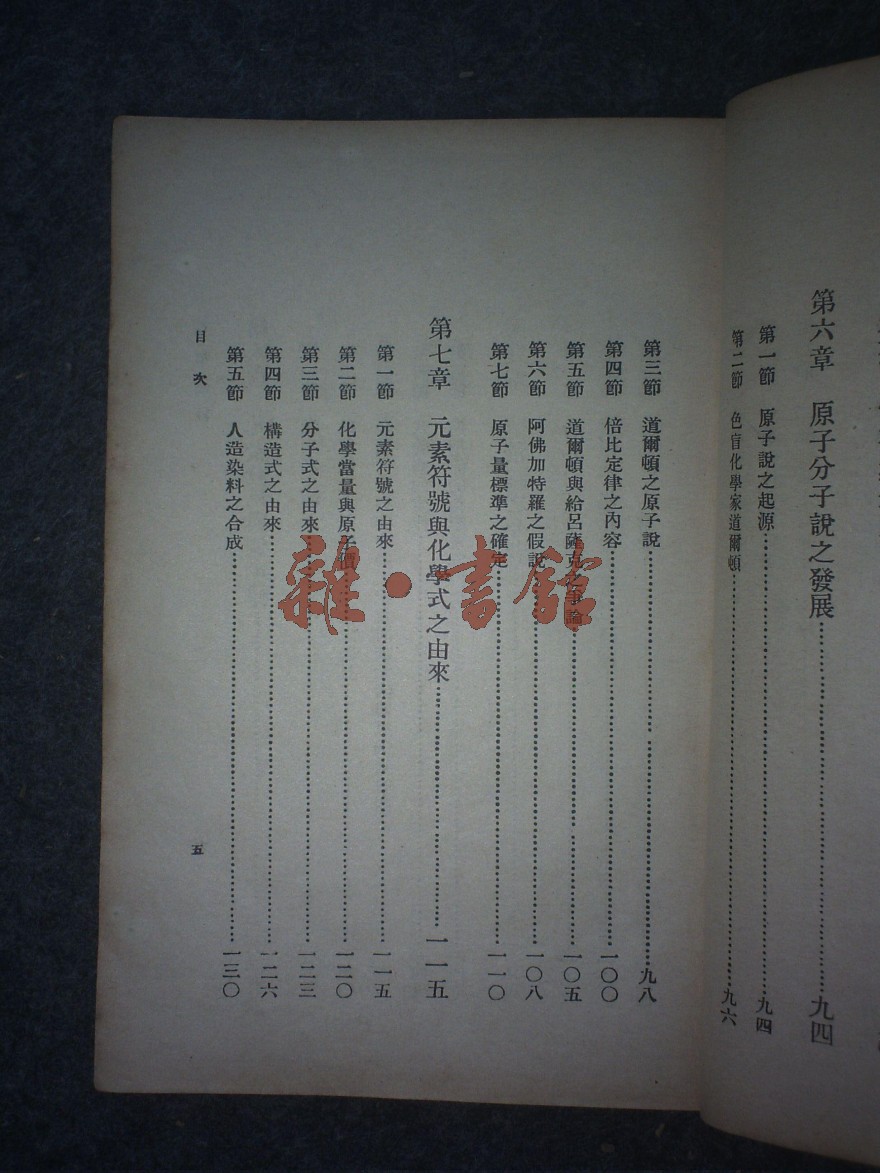 第六章　原子分子說之發展……九四
第一節　原子說之起源……九四
第二節　色盲化學家道爾頓……九六
第三節　道爾頓之原子說……九八
第四節　倍比定律之內容……一〇〇
第五節　道爾頓與給呂薩克之爭論……一〇五
第六節　阿佛加特羅之假說……一〇八
第七節　原子量標準之確定……一一〇
第七章　元素符號與化學式之由來……一一五
第一節　元素符號之由來……一一五
第二節　化學當量與原子價……一二〇
第三節　分子式之由來……一二三
第四節　構造式之由來……一二六
第五節　人造染料之合成……一三〇
目次
五
雜·書館